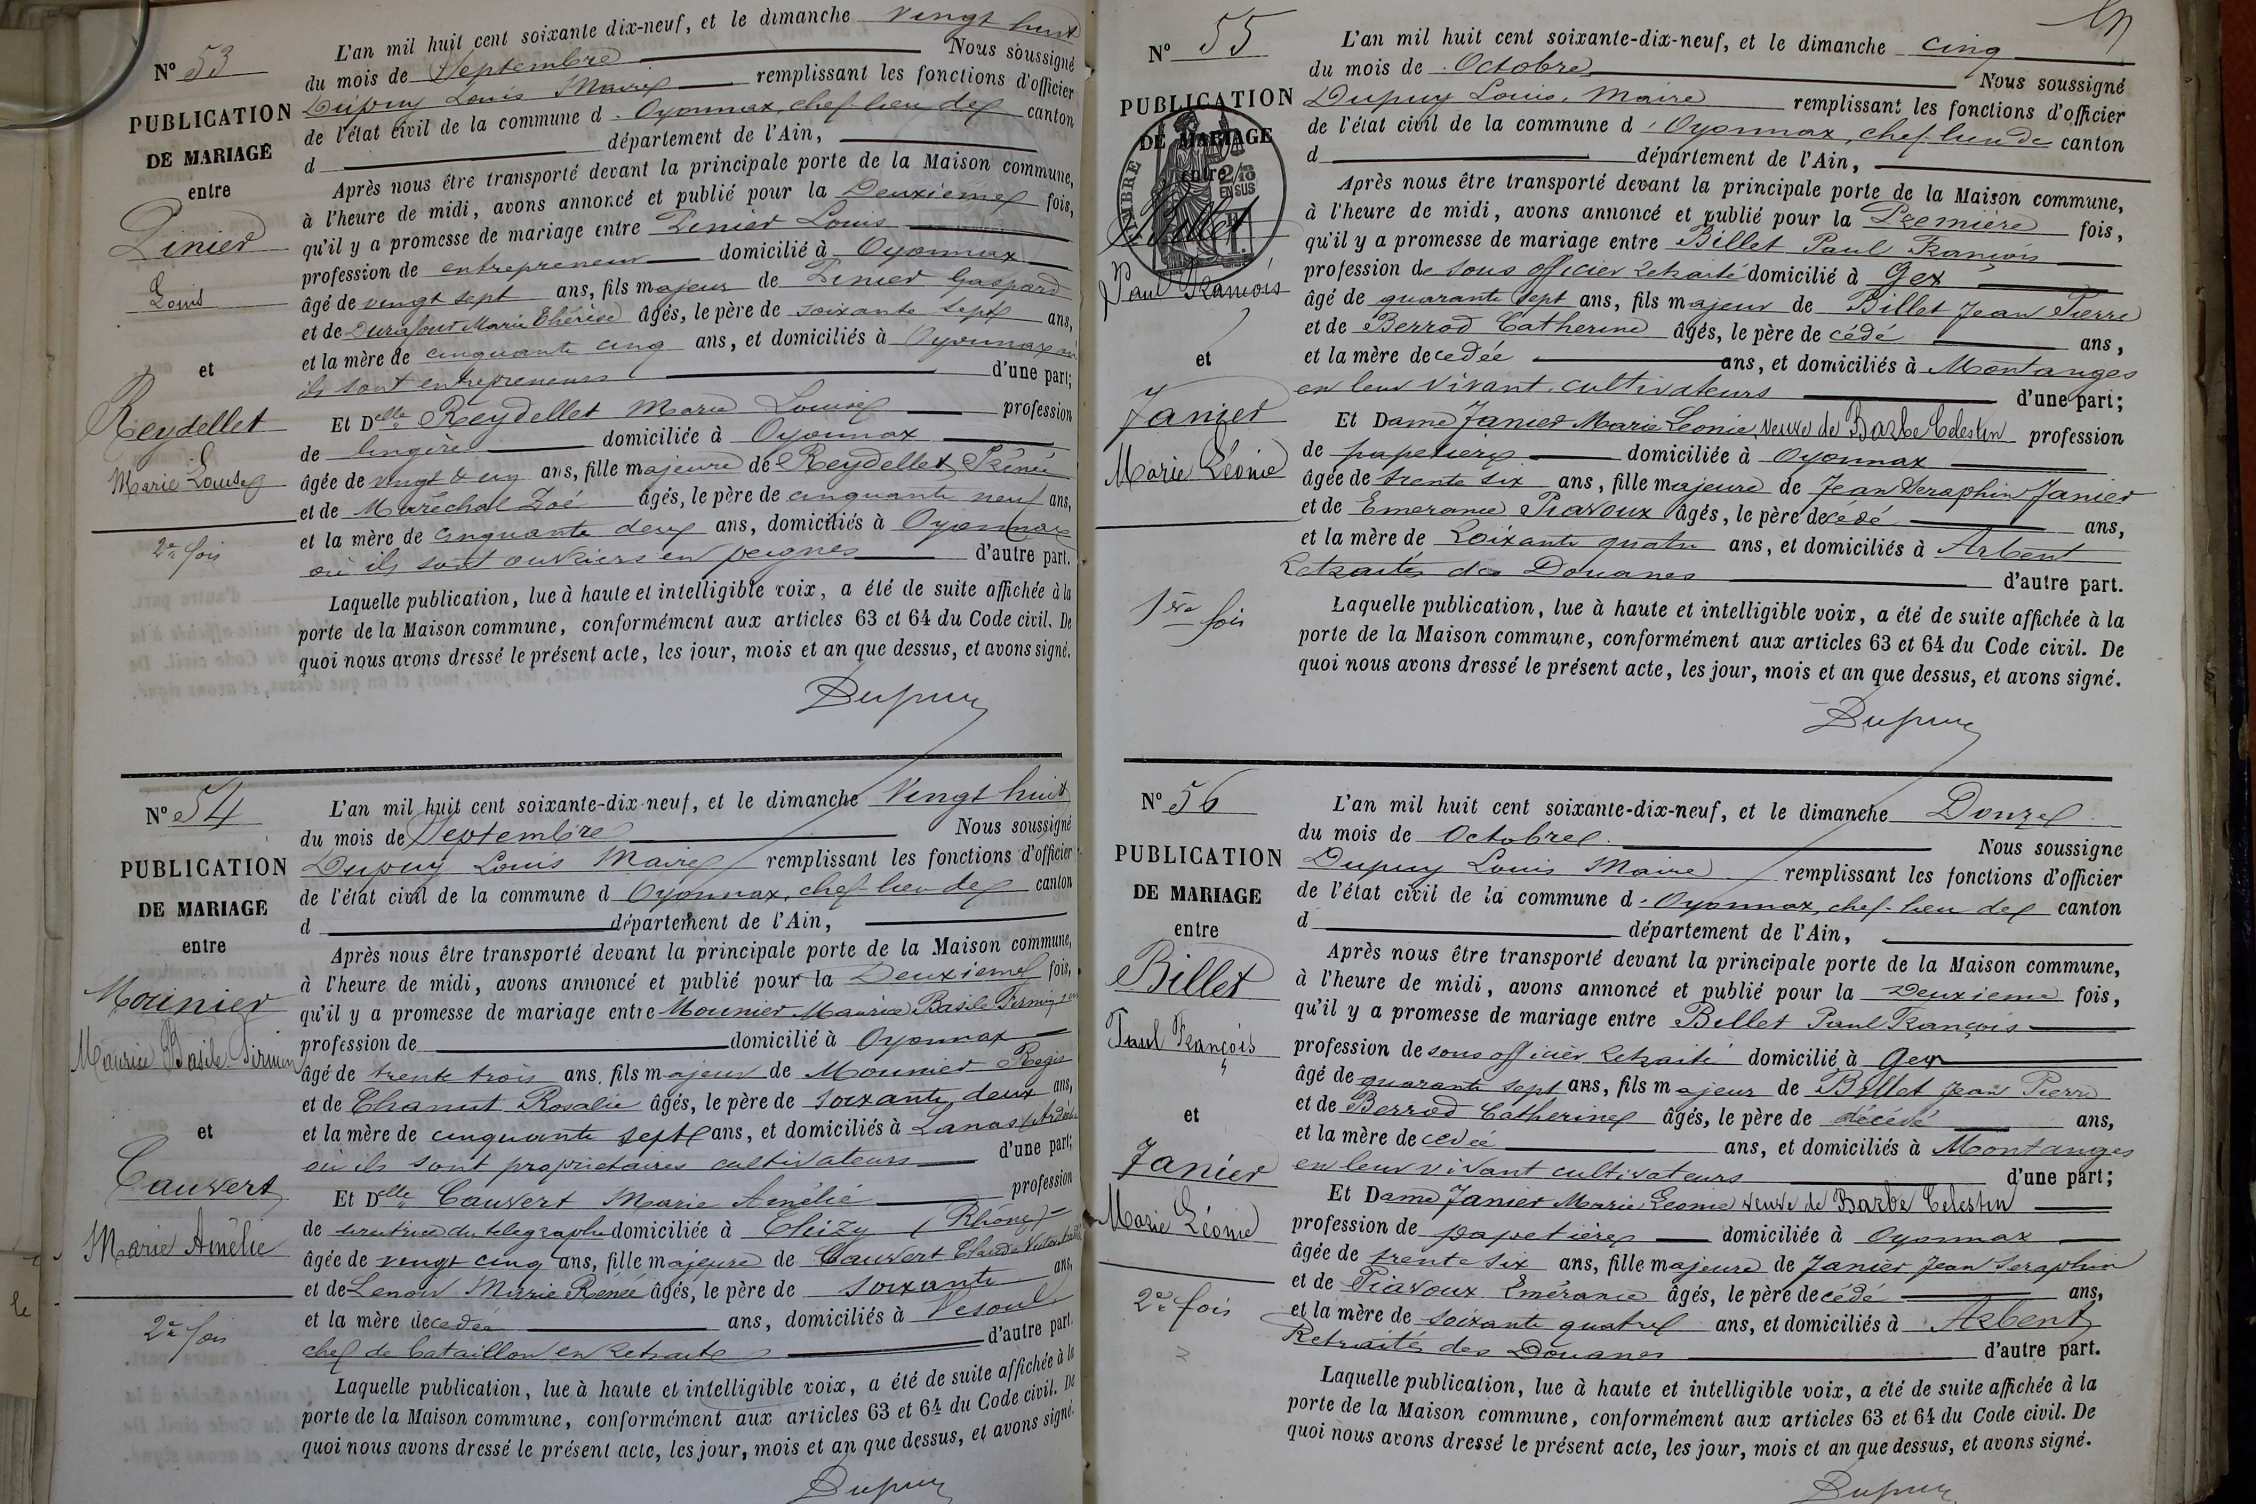 N° 53
PUBLICATION
DE MARIAGE
entre
Pinier
Louis
et
Reydellet
Marie Louise
2e fois
L'an mil huit cent soixante dix-neuf, et le dimanche vingt huit
du mois de Septembre Nous soussigné
Dupuy Louis Maire remplissant les fonctions d'officier
de l'état civil de la commune d Oyonnax, chef-lieu de canton
d département de l'Ain,
Après nous être transporté devant la principale porte de la Maison commune,
à l'heure de midi, avons annoncé et publié pour la Deuxième fois,
qu'il y a promesse de mariage entre Pinier Louis
profession de entrepreneur domicilié à Oyonnax
âgé de vingt sept ans, fils majeur de Pinier Gaspard
et de Durafour Marie Thérèse âgés, le père de soixante sept ans,
et la mère de cinquante cinq ans, et domiciliés à Oyonnax où
ils sont entrepreneurs d'une part;
Et Delle Reydellet Marie Louise profession
de lingère domiciliée à Oyonnax
âgée de vingt & un ans, fille majeure de Reydellet Réné
et de Maréchal Zoé âgés, le père de cinquante neuf ans,
et la mère de cinquante deux ans, domiciliés à Oyonnax
où ils sont ouvriers en peignes d'autre part.
Laquelle publication, lue à haute et intelligible voix, a été de suite affichée à la
porte de la Maison commune, conformément aux articles 63 et 64 du Code civil. De
quoi nous avons dressé le présent acte, les jour, mois et an que dessus, et avons signé.
Dupuy
N° 54
PUBLICATION
DE MARIAGE
entre
Mounier
Maurice Basile Firmin
et
Cauvert
Marie Amélie
2e fois
L'an mil huit cent soixante-dix-neuf, et le dimanche Vingt huit
du mois de Septembre Nous soussigné
Dupuy Louis Maire remplissant les fonctions d'officier
de l'état civil de la commune d Oyonnax, chef-lieu de canton
d département de l'Ain,
Après nous être transporté devant la principale porte de la Maison commune,
à l'heure de midi, avons annoncé et publié pour la Deuxième fois,
qu'il y a promesse de mariage entre Mounier Maurice Basile Firmin
profession de domicilié à Oyonnax
âgé de trente trois ans, fils majeur de Mounier Regis
et de Chanut Rosalie âgés, le père de soixante deux ans,
et la mère de cinquante sept ans, et domiciliés à Lanas (Ardèche
où ils sont propriétaires cultivateurs d'une part;
Et Delle Cauvert Marie Amélie profession
de domiciliée à Thizy (Rhône)
âgée de vingt cinq ans, fille majeure de Cauvert Claude
et de Lenoir Marie Renée âgés, le père de soixante ans,
et la mère decedée ans, domiciliés à Vesoul
chef de bataillon en retraite d'autre part.
Laquelle publication, lue à haute et intelligible voix, a été de suite affichée à la
porte de la Maison commune, conformément aux articles 63 et 64 du Code civil. De
quoi nous avons dressé le présent acte, les jour, mois et an que dessus, et avons signé.
Dupuy
N° 55
PUBLICATION
DE MARIAGE
entre
TIMBRE
2/10
EN SUS
Billet
Paul François
et
Janier
Marie Léonie
1ère fois
L'an mil huit cent soixante-dix-neuf, et le dimanche cinq
du mois de Octobre Nous soussigné
Dupuy Louis, Maire remplissant les fonctions d'officier
de l'état civil de la commune d Oyonnax, chef-lieu de canton
d département de l'Ain,
Après nous être transporté devant la principale porte de la Maison commune,
à l'heure de midi, avons annoncé et publié pour la Première fois,
qu'il y a promesse de mariage entre Billet Paul François
profession de sous officier retraité domicilié à Gex
âgé de quarante sept ans, fils majeur de Billet Jean Pierre
et de Berrod Catherine âgés, le père de cédé ans,
et la mère decedée ans, et domiciliés à Montanges
en leur vivant cultivateurs d'une part;
Et Dame Janier Marie Leonie, veuve de Barbe Celestin profession
de papetière domiciliée à Oyonnax
âgée de trente six ans, fille majeure de Jean Seraphin Janier
et de Emerance Piavoux âgés, le père decédé ans,
et la mère de soixante quatre ans, et domiciliés à Arbent
Retraités des Douanes d'autre part.
Laquelle publication, lue à haute et intelligible voix, a été de suite affichée à la
porte de la Maison commune, conformément aux articles 63 et 64 du Code civil. De
quoi nous avons dressé le présent acte, les jour, mois et an que dessus, et avons signé.
Dupuy
N° 56
PUBLICATION
DE MARIAGE
entre
Billet
Paul François
et
Janier
Marie Léonie
2e fois
L'an mil huit cent soixante-dix-neuf, et le dimanche Douze
du mois de Octobre Nous soussigné
Dupuy Louis Maire remplissant les fonctions d'officier
de l'état civil de la commune d Oyonnax, chef-lieu de canton
d département de l'Ain,
Après nous être transporté devant la principale porte de la Maison commune,
à l'heure de midi, avons annoncé et publié pour la Deuxieme fois,
qu'il y a promesse de mariage entre Billet Paul François
profession de sous officier retraité domicilié à Gex
âgé de quarante sept ans, fils majeur de Billet Jean Pierre
et de Berrod Catherine âgés, le père de décédé ans,
et la mère decedée ans, et domiciliés à Montanges
en leur vivant cultivateurs d'une part;
Et Dame Janier Marie Leonie veuve de Barbe Celestin
profession de papetière domiciliée à Oyonnax
âgée de trente six ans, fille majeure de Janier Jean Seraphin
et de Piavoux Emérance âgés, le père decédé ans,
et la mère de soixante quatre ans, et domiciliés à Arbent
Retraités des Douanes d'autre part.
Laquelle publication, lue à haute et intelligible voix, a été de suite affichée à la
porte de la Maison commune, conformément aux articles 63 et 64 du Code civil. De
quoi nous avons dressé le présent acte, les jour, mois et an que dessus, et avons signé.
Dupuy